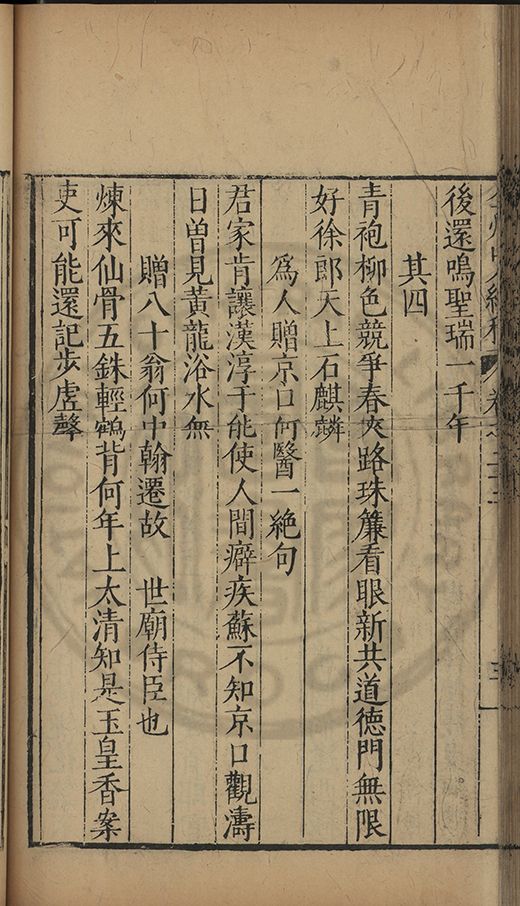 後還鳴聖瑞一千年
其四
青袍柳色競爭春夾路珠簾看眼新共道德門無限
好徐郎天上石麒麟
爲人贈京口何醫一絶句
君家肯讓漢淳于能使人間癖疾蘇不知京口觀濤
日曽見黃龍浴水無
贈八十翁何中翰遷故 世廟侍臣也
煉來仙骨五銖輕鶴背何年上太清知是玉皇香案
吏可能還記步虛聲